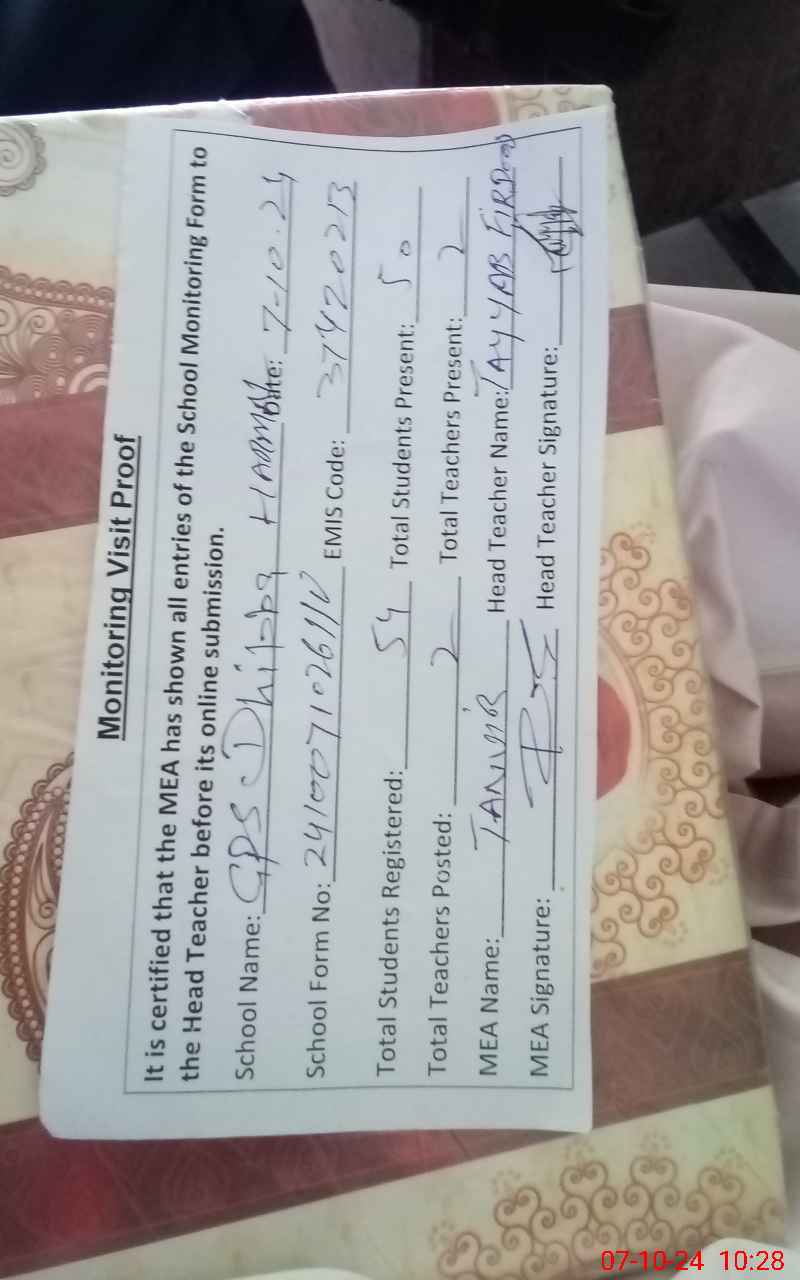 Monitoring Visit Proof
It is certified that the MEA has shown all entries of the School Monitoring Form to
the Head Teacher before its online submission.
School Name: GPS Dhiloba Date: 7-10-24
School Form No: EMIS Code: 37420213
Total Students Registered: 54 Total Students Present: 50
Total Teachers Posted: 2 Total Teachers Present: 2
MEA Name: TANVIR Head Teacher Name: TAYYAB FIRDOOS
MEA Signature: Head Teacher Signature:
07-10-24 10:28